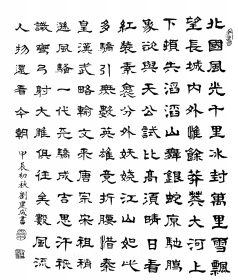 北國風光千里冰封萬里雪飄
望長城內外惟餘莽莽大河上
下頓失滔滔山舞銀蛇原馳臘
象欲與天公試比高須晴日看
紅裝素裹分外妖嬈江山如此
多嬌引無數英雄競折腰惜秦
皇漢武略輸文采唐宗宋祖稍
遜風騷一代天驕成吉思汗祗
識彎弓射大雕俱往矣數風流
人物還看今朝
甲辰初秋劉建成書